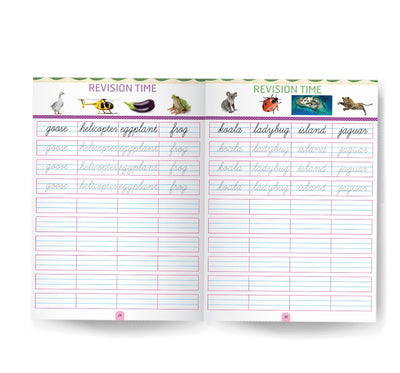 REVISION TIME
goose helicopter eggplant frog
goose helicopter eggplant frog
goose helicopter eggplant frog
goose helicopter eggplant frog
REVISION TIME
koala ladybug island jaguar
koala ladybug island jaguar
koala ladybug island jaguar
koala ladybug island jaguar